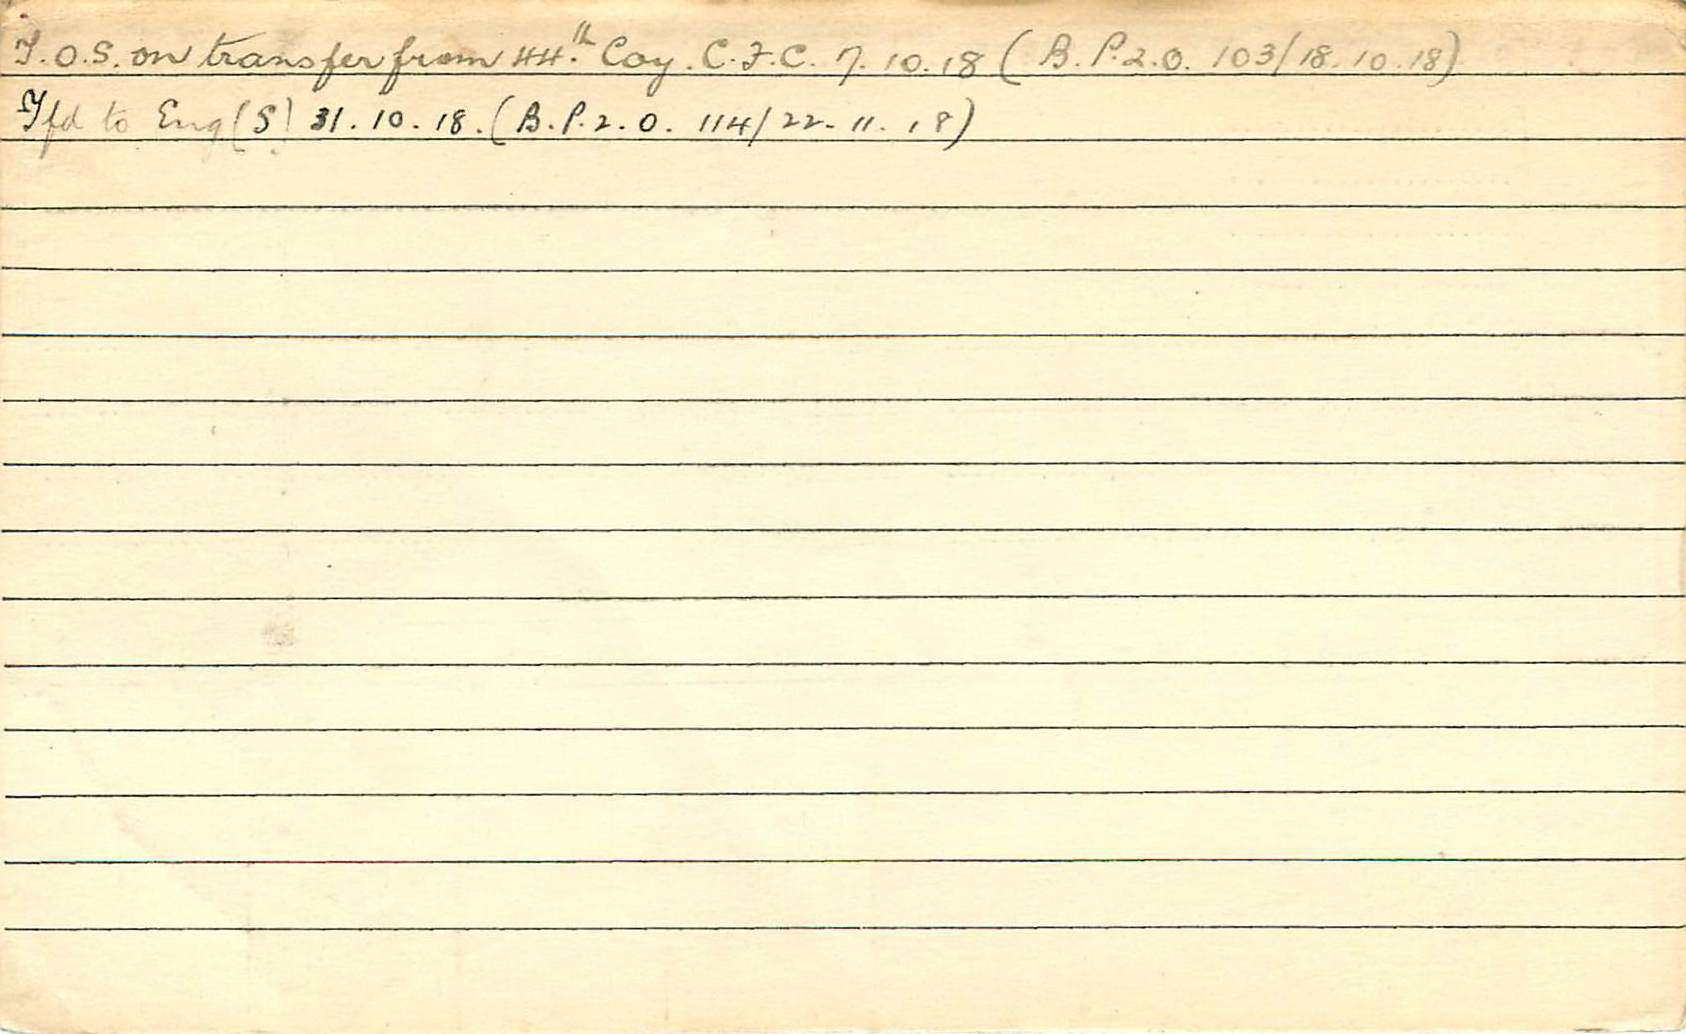 T.O.S. on transfer from 44th Coy. C.F.C. 7.10.18 (B.P.2.O. 103/18.10.18)
Tfd to Eng (S) 31.10.18. (B.P.2.O. 114/22-11.18)